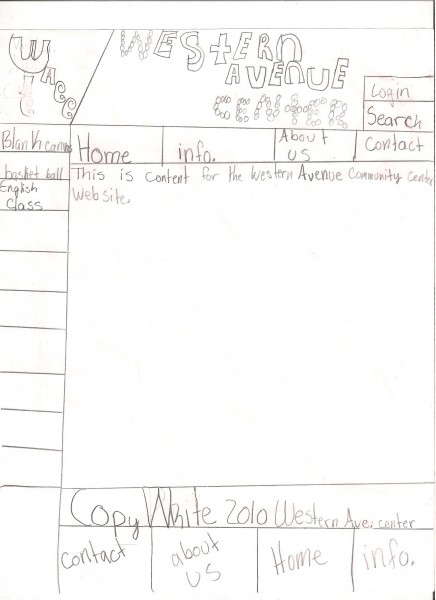 WACC
WESTERN
AVENUE
CENTER
Login
Search
Blank canvas
Home
info.
About
us
Contact
basket ball
English
Class
This is content for the Western Avenue Community center
Website.
CopyWrite 2010 Western Ave. center
contact
about
us
Home
info.